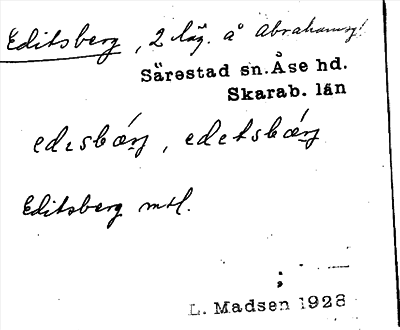 Editsberg, 2 läg. å Abrahamsg.
Särestad sn. Åse hd.
Skarab. län
edɛsbǽrj, edetsbǽrj
Editsberg mtl.
L. Madsen 1928